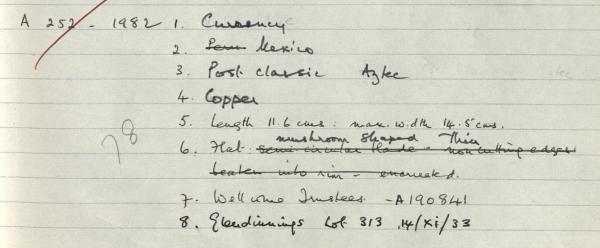 A 252 - 1982 1. Currency
2. Mexico
3. Post classic Aztec
4. Copper
5. Length 11.6 cms : max. width 14.5 cms.
mushroom shaped Thin
6. Flat. semi-circular blade - non cutting edges
beaten into rim - encrusted.
78
7. Wellcome Trustees - A190841
8. Glendinnings Lot 313 14/xi/33